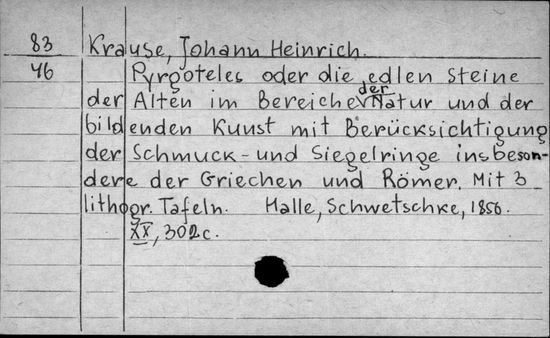 83 Krause, Johann Heinrich.
46 Pyrgoteles oder die edlen Steine
der Alten im Bereiche der Natur und der
bildenden Kunst mit Berücksichtigung
der Schmuck- und Siegelringe insbeson-
dere der Griechen und Römer. Mit 3
lithogr. Tafeln. Halle, Schwetschke, 1856.
XX, 302c.